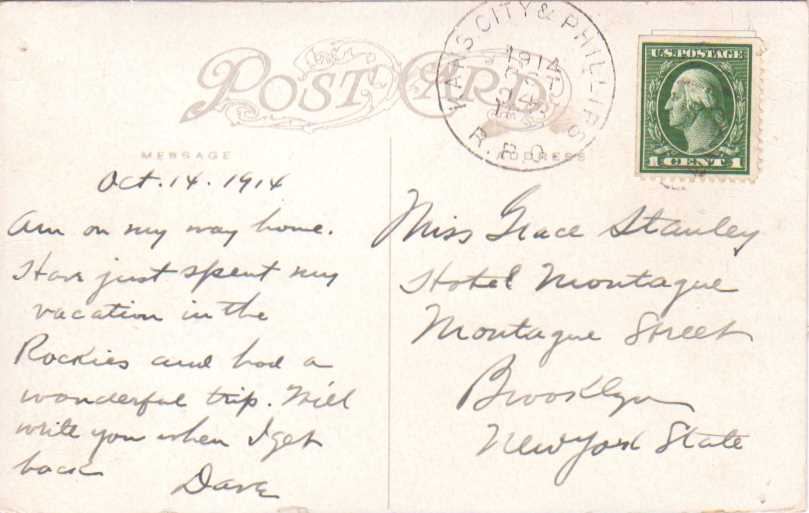 POST CARD
KANS CITY & PHILLIPS
1914
OCT
14
R.P.O.
U.S. POSTAGE
1 CENT 1
MESSAGE
ADDRESS
Oct. 14. 1914
Am on my way home.
Have just spent my
vacation in the
Rockies and had a
wonderful trip. Will
write you when I get
back
Dave
Miss Grace Stanley
Hotel Montague
Montague Street
Brooklyn
New York State